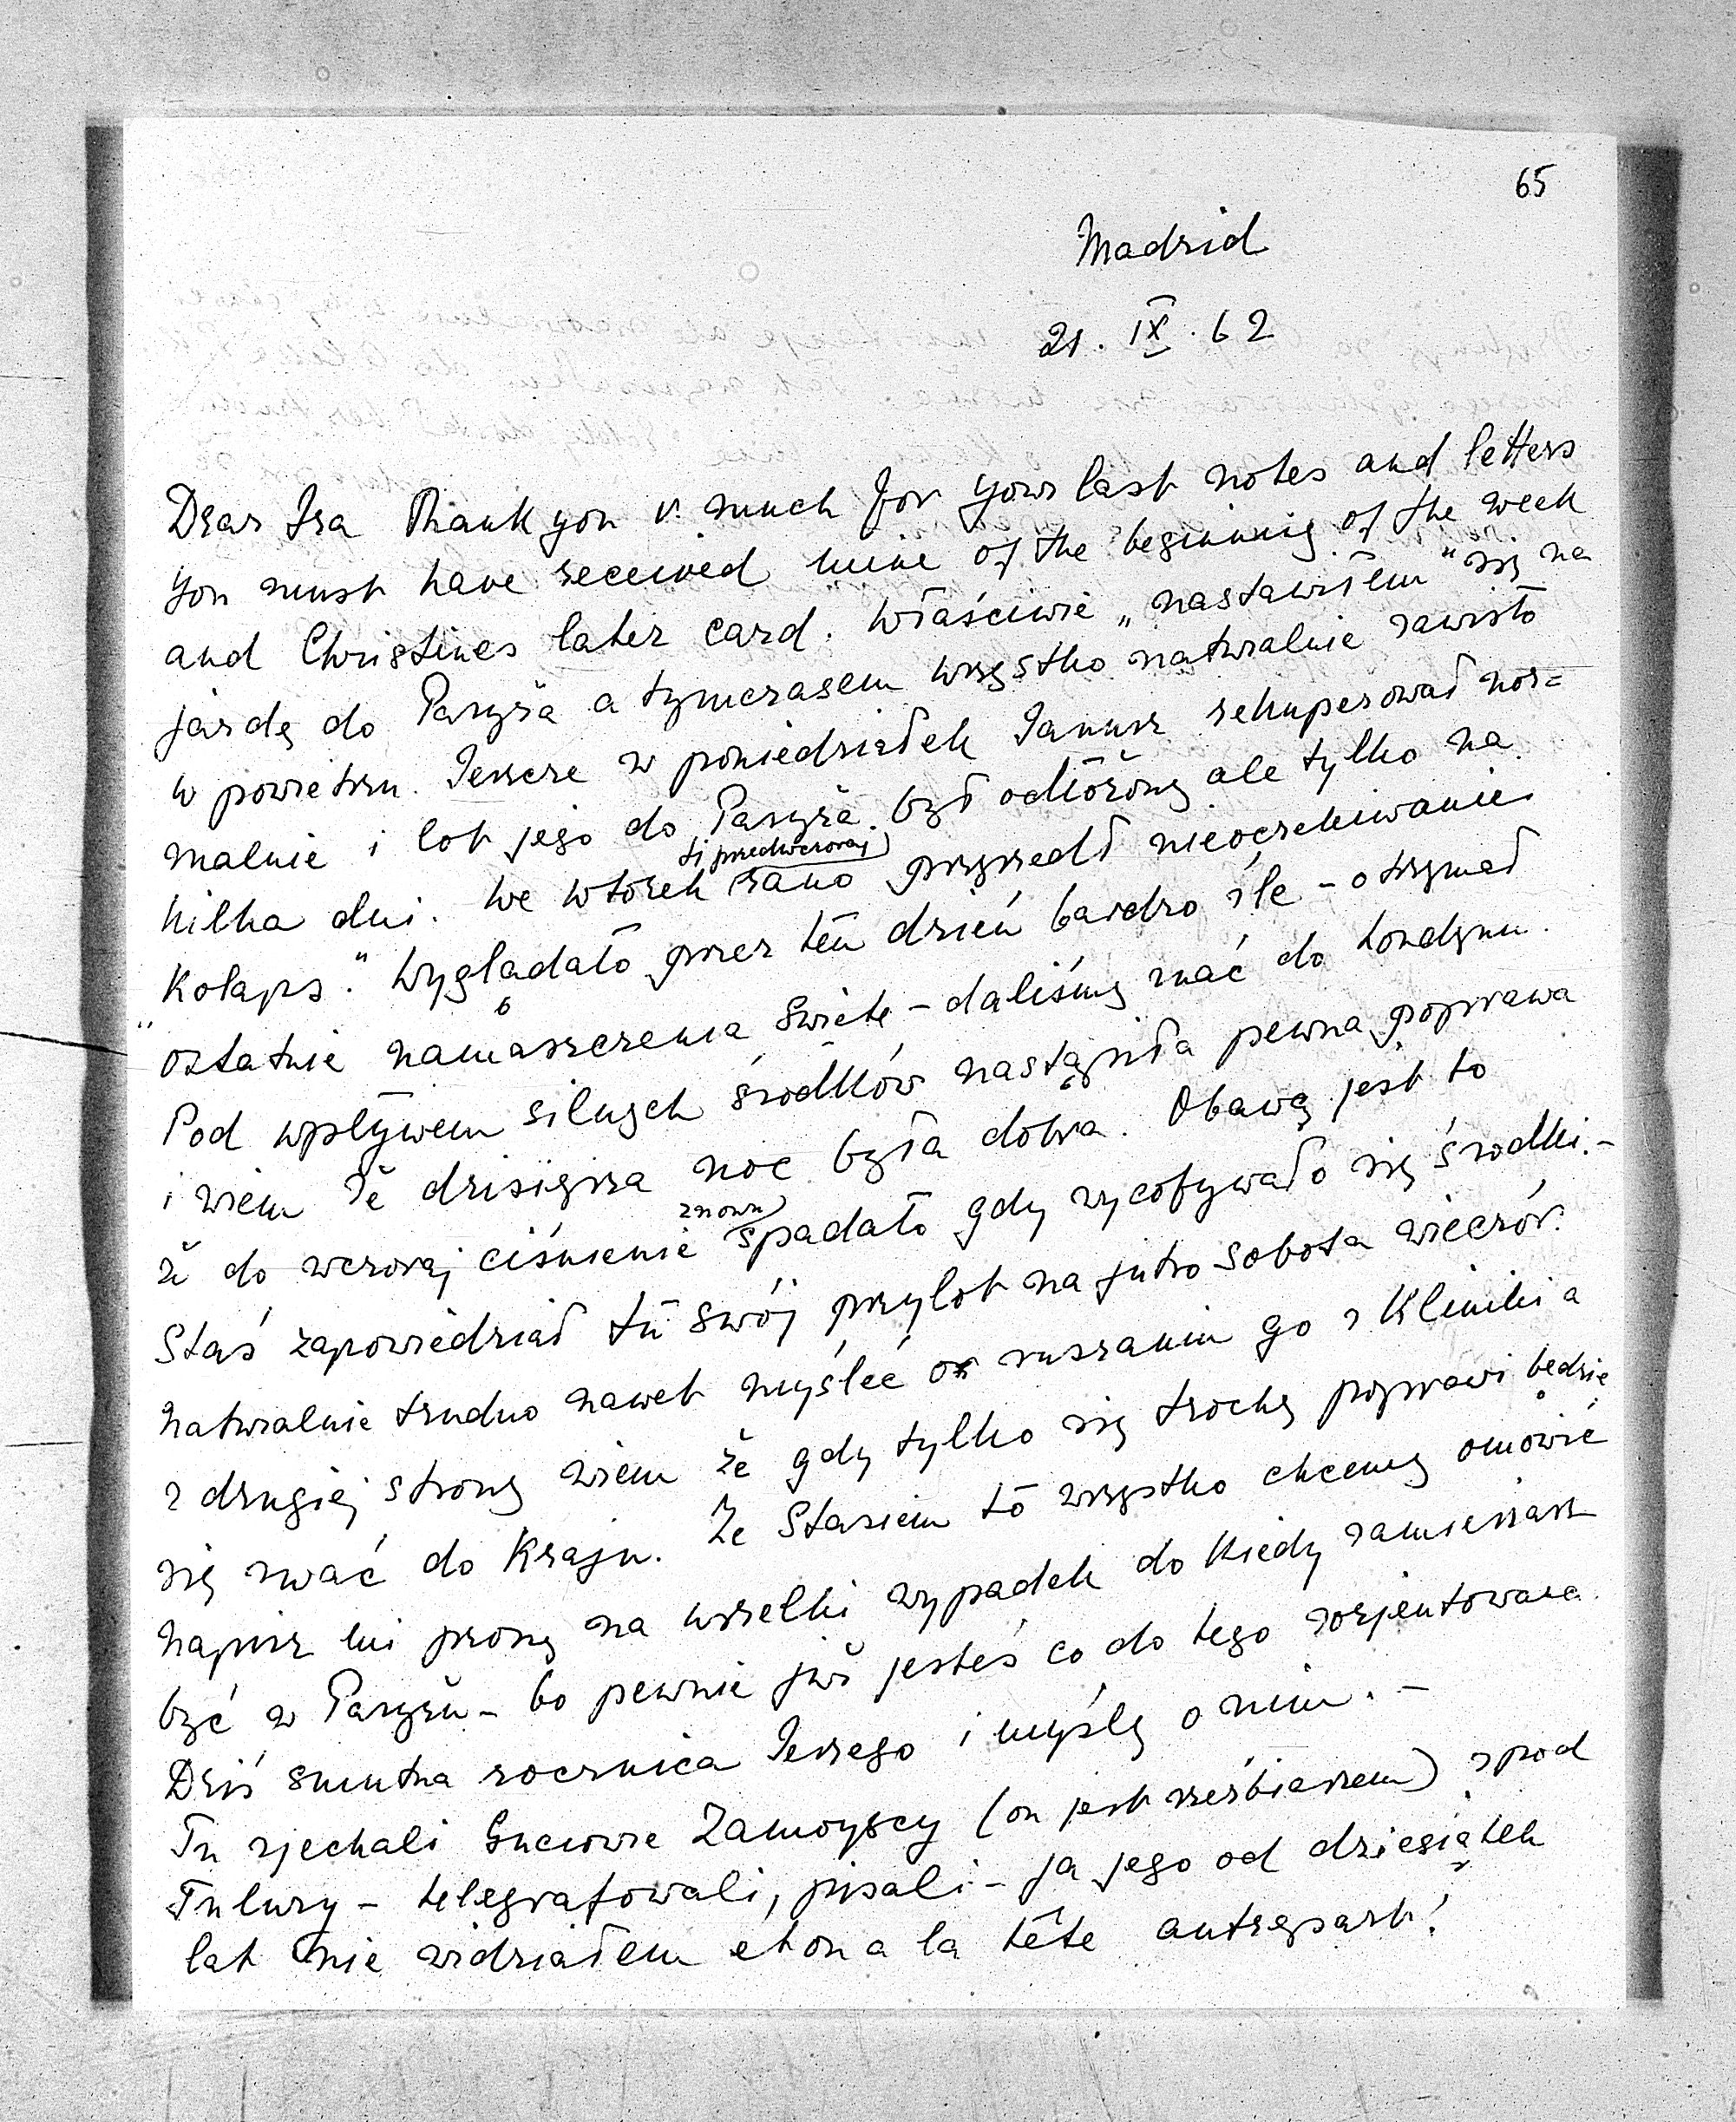 65
Madrid
21. IX. 62
Dear Ira Thank you v. much for your last notes and letters
you must have received mine of the beginning of the week
and Christines later card. Właściwie „nastawiłem" się na
jazdę do Paryża a tymczasem wszystko naturalnie zawisło
w powietrzu. Jeszcze w poniedziałek Janusz rekuperował nor=
malnie i lot jego do Paryża był odłożony ale tylko na
kilka dni. We wtorek (tj przedwczoraj) rano przyszedł nieoczekiwanie
"Kolaps." Wyglądało przez ten dzień bardzo źle – otrzymał
ostatnie namaszczenia święte – daliśmy znać do Londynu.
Pod wpływem silnych środków nastąpiła pewna poprawa
i wiem że dzisiejsza noc była dobra. Obawą jest to
że do wczoraj ciśnienie znowu spadało gdy wycofywało się środki. –
Staś zapowiedział tu swój przylot na jutro sobota wieczór.
Naturalnie trudno nawet myśleć o ruszaniu go z Kliniki a
z drugiej strony wiem że gdy tylko się trochę poprawi będzie
się rwać do Kraju. Ze Stasiem to wszystko chcemy omówić
Napisz mi proszę na wszelki wypadek do kiedy zamierzasz
być w Paryżu – bo pewnie już jesteś co do tego zorjentowana
Dziś smutna rocznica Jerzego i myślę o nim. –
Tu zjechali Guciowie Zamoyscy (on jest rzeźbiarzem) z pod
Tuluzy – telegrafowali, pisali – ja jego od dziesiątek
lat nie widziałem et on a la tête autrepart!